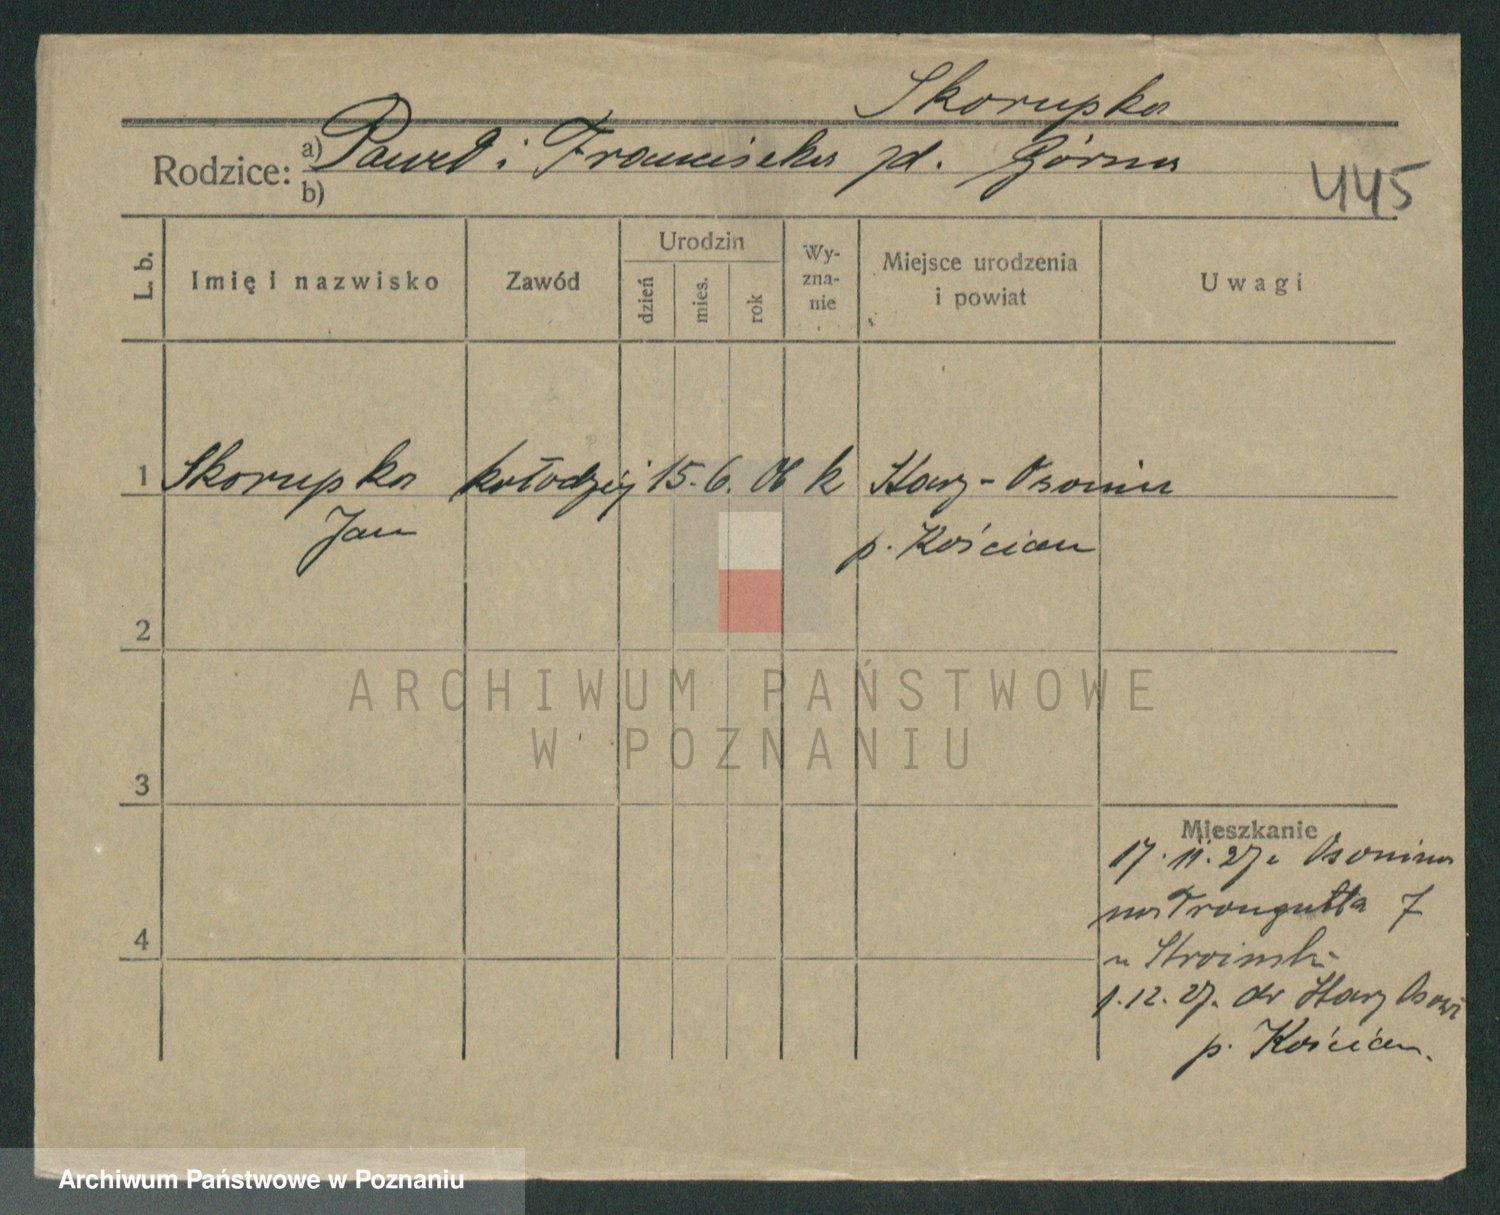 Skorupka
Rodzice: a) Paweł i Franciszka zd. Górna
b)
445
L. b. Imię i nazwisko Zawód Urodzin dzień mies. rok Wy-zna-nie Miejsce urodzenia i powiat Uwagi
1 Skorupka kołodziej 15. 6. 06 k Stary-
Jan p. Kościan
2
ARCHIWUM PAŃSTWOWE
W POZNANIU
3
Mieszkanie
17. 11. 27 z
na Traugutta 7
4
u
1. 12. 27. do Stary
p. Kościan.
Archiwum Państwowe w Poznaniu